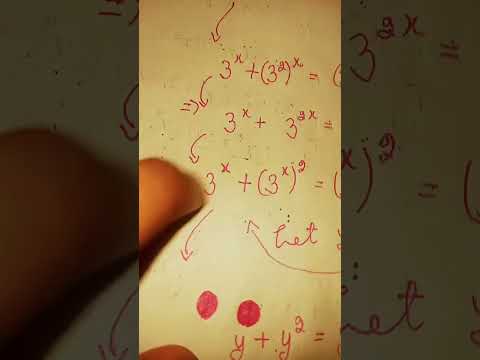 3^x + (3^2)^x = (
=> 3^x + 3^{2x} =
3^x + (3^x)^2 = (
Let y
y + y^2 =
3^{2x} =
)^2 = (
et y